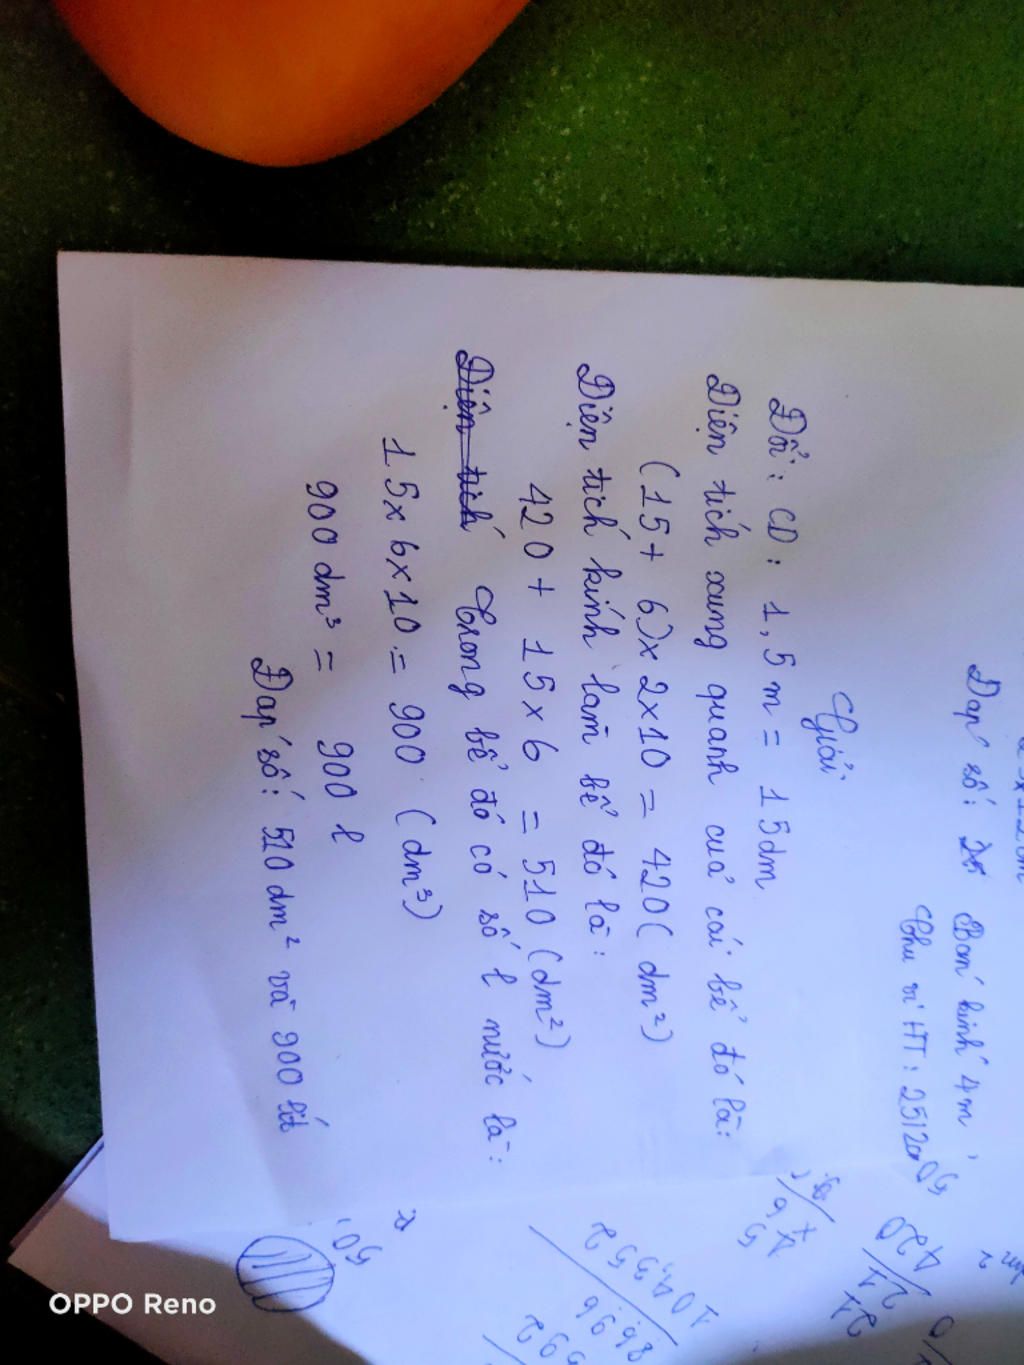 Đap số: 25 Ban kinh 4m,
Chu vi HT: 2512cm
Giải
Đổi: CD: 1,5 m = 15dm
Diện tích xung quanh cuả cái bể đó là:
(15 + 6) x 2 x 10 = 420 (dm²)
Diện tích kính làm bể đó là:
420 + 15 x 6 = 510 (dm²)
Diện tích Trong bể đó có số l nước là:
15 x 6 x 10 = 900 (dm³)
900 dm³ = 900 l
Đap số: 510 dm² và 900 lít
50
420
21
21
15
x 6
104,352
86,96
392
50,
OPPO Reno